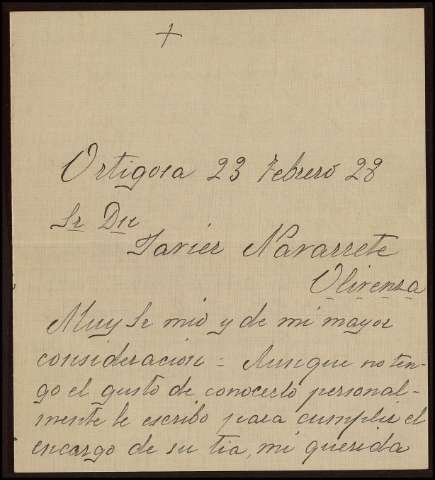 +
Ortigosa 23 Febrero 28
Sr Dn
Javier Navarrete
Olivenza
Muy Sr mio y de mi mayor
consideracion = Aunque no ten-
go el gusto de conocerlo personal-
mente le escribo para cumplir el
encargo de su tia, mi querida